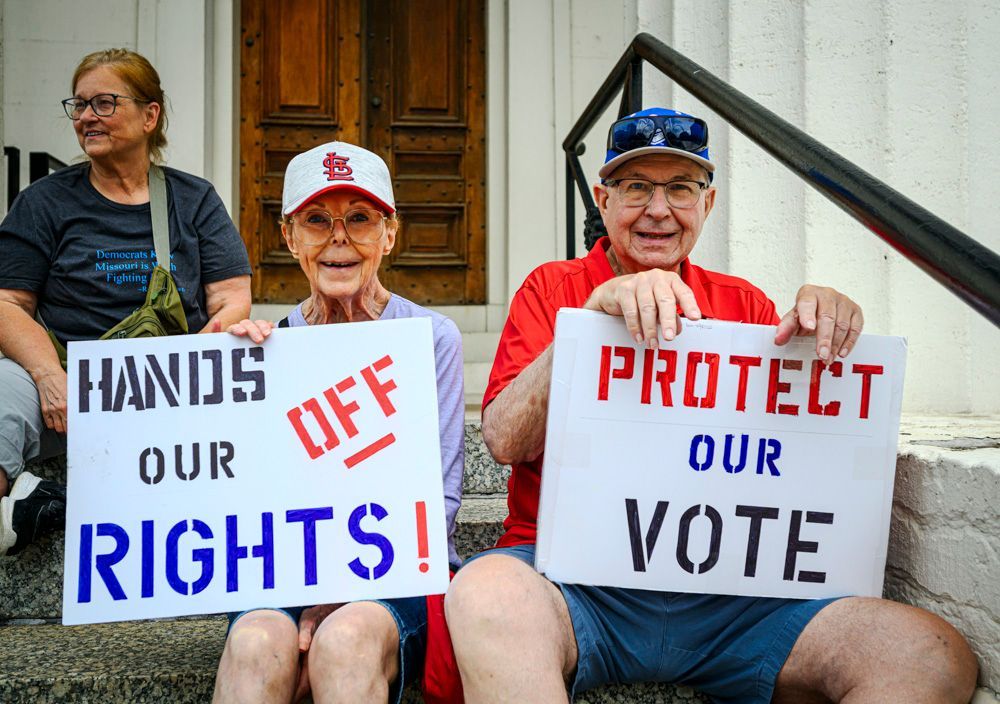 STL
Democrats Know
Missouri is Worth
Fighting
HANDS OFF
OUR
RIGHTS!
PROTECT
OUR
VOTE